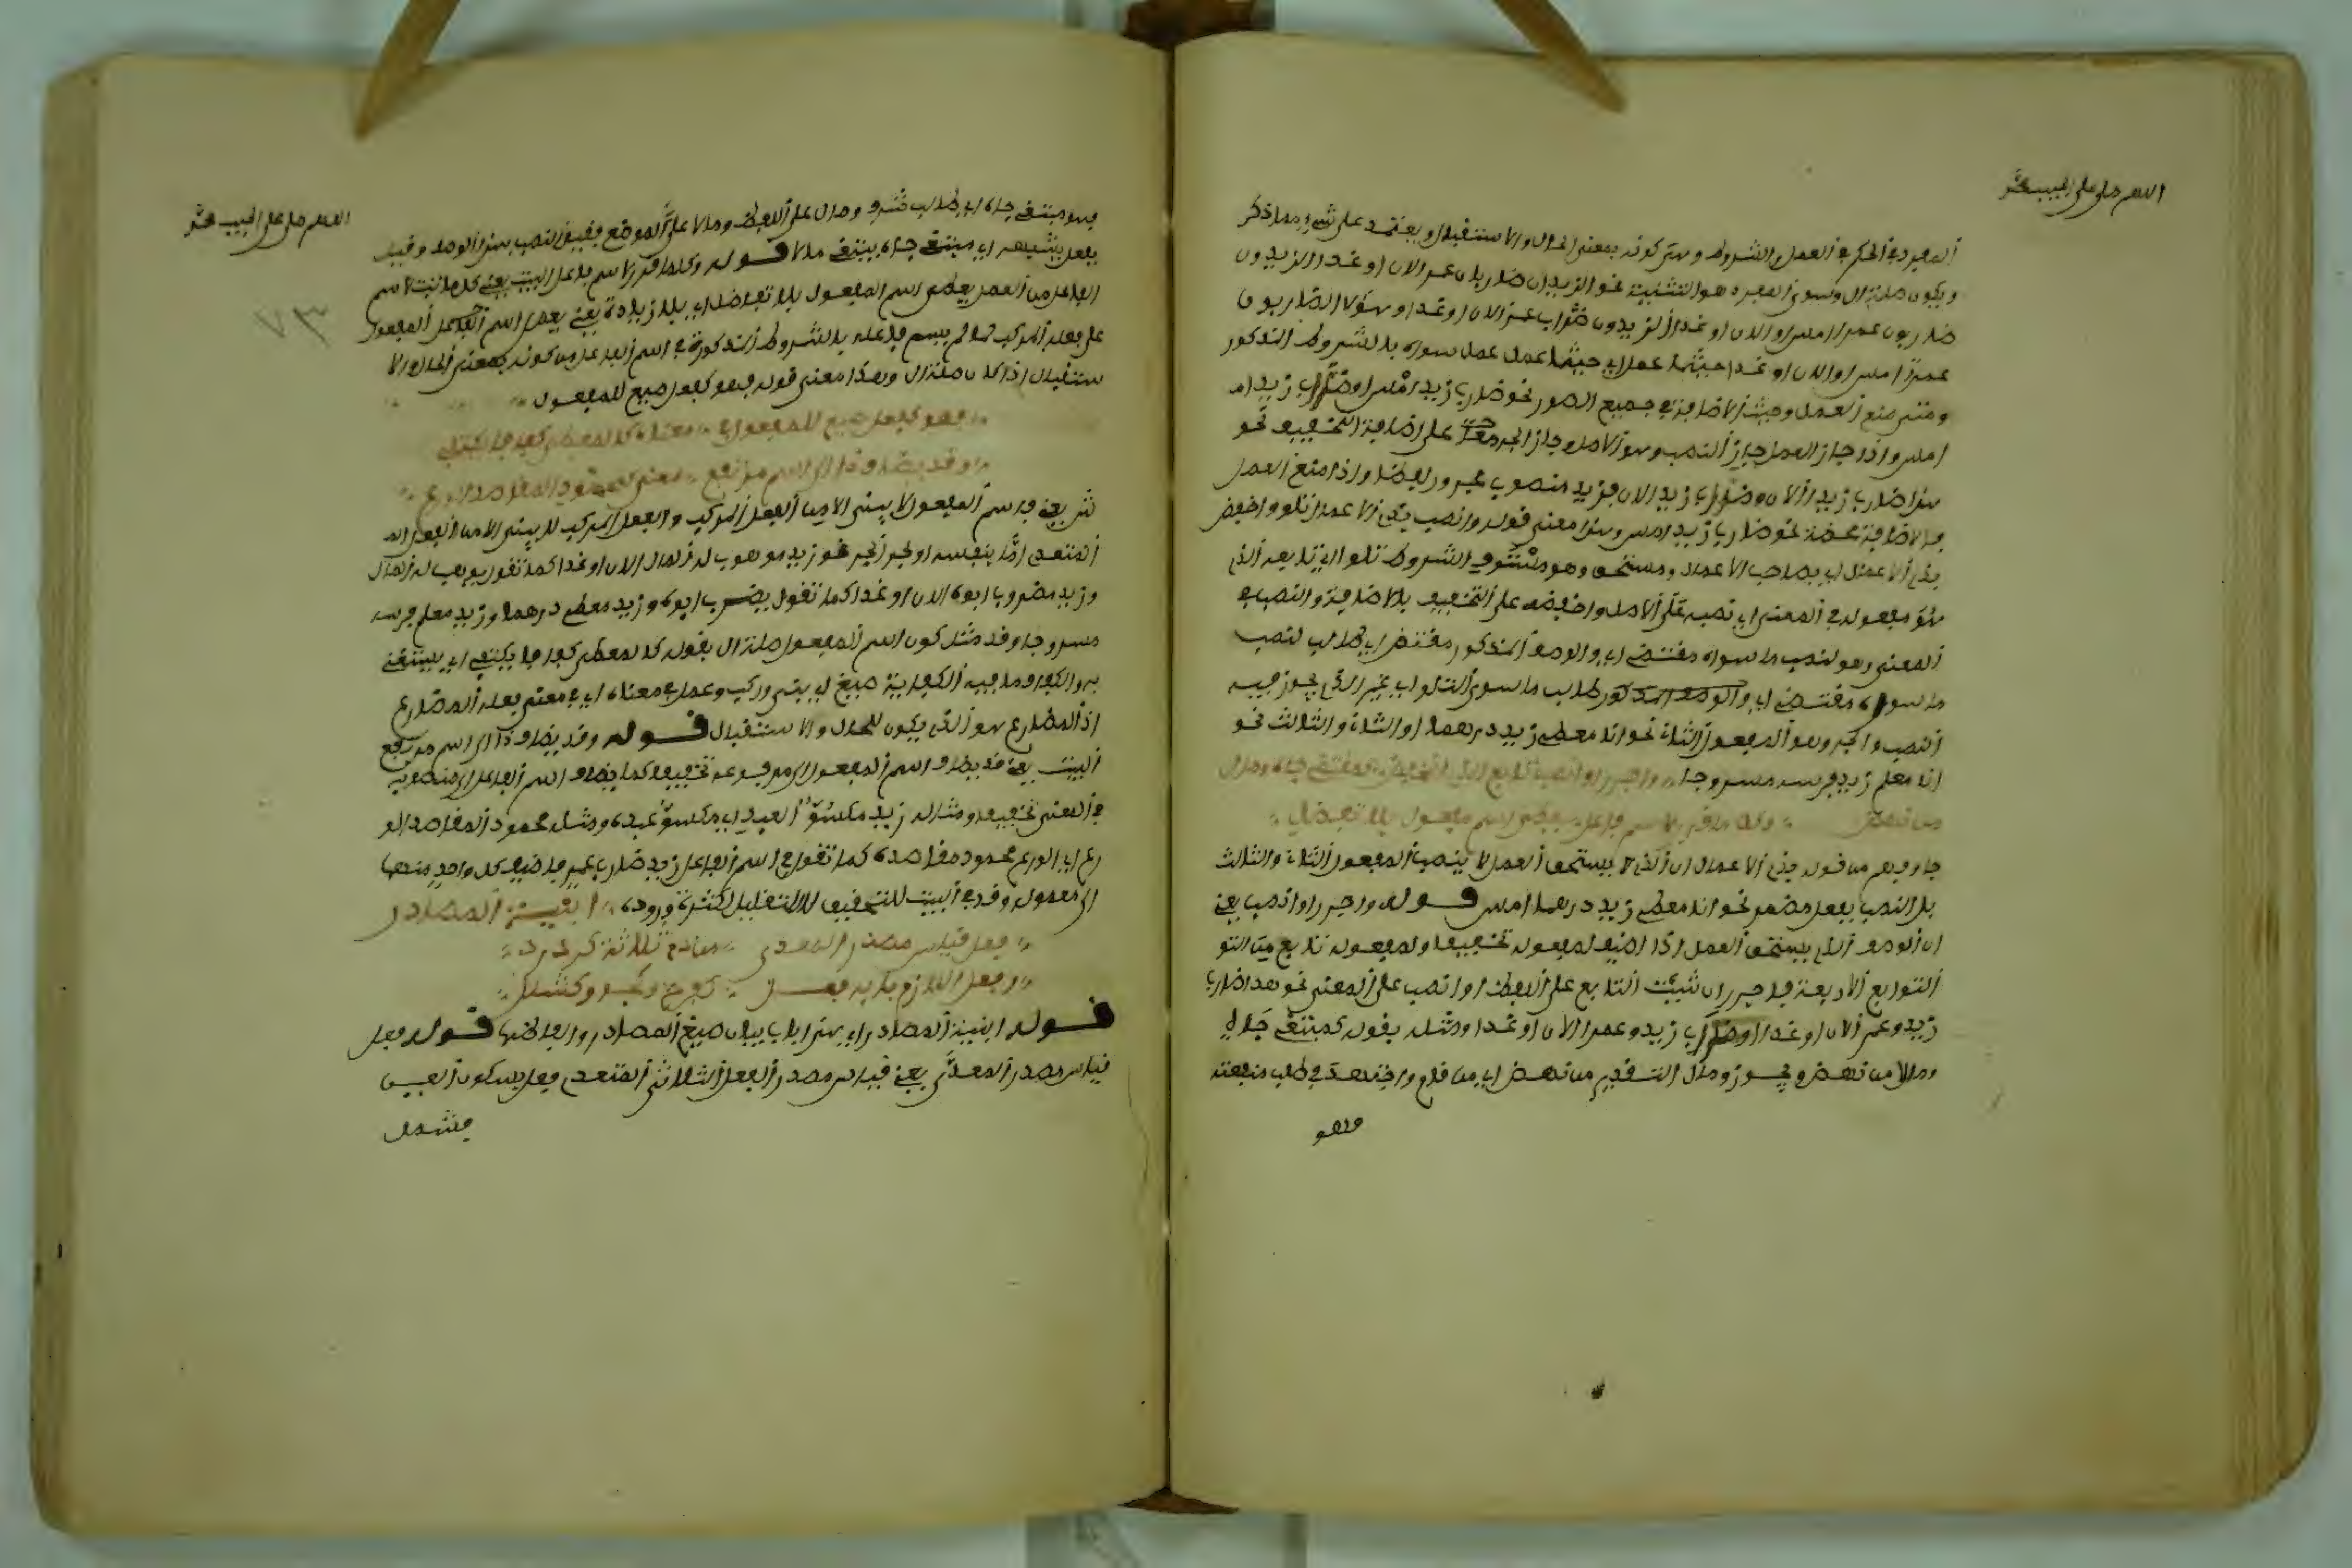 اللهم صل على الحبيب محمد
المفرد في الحكم في العمل والشروط وسن كونه بمعنى الحال والاستقبال ويعتمد على شيء مما ذكر
ويكون صلة ال وسوى المفرد هو التثنية نحو الزيدان ضاربان عمرا الان او غدا والزيدون
ضاربون عمرا امس او الان او غدا الزيدون ضراب عمرا الان او غدا وهؤلاء الضاربون
عمرا امس او الان او غدا حيثما عمل اي حيثما عمل عمل سواه بالشروط المذكور
ومتى منع العمل وجبت الاضافة في جميع الصور نحو ضارب زيد امس او ضراب زيد ا
امس واذا جاز العمل جاز النصب وهو الاصل وجاز الجر على اضافة التخفيف نحو
هذا ضارب زيدا الان وضراب زيد الان فزيد منصوب مجرور لفظا واذا امتنع العمل
فالاضافة محضة نحو ضارب زيد امس وهذا معنى قوله وانصب بذي الاعمال تلوا واخفض
بذي الاعمال اي بصاحب الاعمال ومستحقه وهو مستوفي الشروط تلوا اي تابعه الذي
هو مفعوله في المعنى اي نصبه على الاصل واخفضه على التخفيف بالاضافة والنصب في
المعنى وهو لنصب ما سواه مقتضي اي والوصف المذكور مقتض اي طالب لنصب
ما سواه مقتضي اي والوصف المذكور طالب ما سوى التلو اي غير الذي يجوز فيه
النصب والجر وهو المفعول الثاني نحو انا معطي زيد درهما او الثاني والثالث نحو
انا معلم زيد فرسه مسروجا واجرر او انصب تابع الذي انخفض كمبتغي جاه ومالا
من نهض وكل ما قرر لاسم فاعل يعطى اسم مفعول بلا تفاضل
جا وفهم من قوله بذي الاعمال ان الذي لا يستحق العمل لا ينصب المفعول الثاني والثالث
بل النصب بفعل مضمر نحو انا معطي زيد درهما امس قوله واجرر او انصب يعني
ان الوصف الذي يستحق العمل اذا اضيف لمفعوله تخفيفا ولمفعوله تابع من التو
التوابع الاربعة فاجرر ان شئت التابع على اللفظ او انصب على المعنى نحو هذا ضارب
زيد وعمر الان او غدا او ضراب زيد وعمرا الان او غدا ومثله بقوله كمبتغي جاه
ومالا من نهض ويجوز ومال التقدير من نهض اي من قام واجتهد في طلب منفعته
فهو
اللهم صل على الحبيب محمد
٧٣
فهو مبتغي جاه اي طالب شرف ومال على اللفظ ومالا على الموضع فقيل النصب بهذا الوصف وقيل
بفعل يشبهه اي مبتغي جاه يبتغي مالا قوله وكل ما قرر لاسم فاعل البيت يعني كل ما ثبت لاسم
الفاعل من العمل يعطى اسم المفعول بلا تفاضل اي بلا زيادة يعني يعمل اسم المفعول
على فعله المركب لما لم يسم فاعله بالشروط المذكورة في اسم الفاعل من كونه بمعنى الحال او الا
ستقبال اذا كان صلة ال وهذا معنى قوله فهو كفعل صيغ للمفعول
فهو كفعل صيغ للمفعول في معناه كالمعطى كفافا يكتفي
وقد يضاف ذا الى اسم مرتفع معنى كمحمود المقاصد الورع
ش يعني واسم المفعول لا يبنى الا من الفعل المركب والفعل المركب لا يبنى الا من الفعل الم
المتعدي اما بنفسه او بحرف الجر نحو زيد موهوب له المال الان او غدا كما تقول يوهب له المال
وزيد مضروب ابوه الان او غدا كما تقول يضرب ابوه وزيد معطى درهما وزيد معلم فرسه
مسروجا وقد مثل كون اسم المفعول صلة ال بقوله كالمعطى كفافا يكتفي اي يستغني
به والكفاف ما فيه الكفاية صيغ اي بني وركب وعمل في معناه اي في معنى فعله المضارع
اذ المضارع هو الذي يكون للحال والاستقبال قوله وقد يضاف ذا الى اسم مرتفع
البيت يعني قد يضاف اسم المفعول الى مرفوعه تخفيفا كما يضاف اسم الفاعل الى منصوبه
في المعنى تخفيفا ومثاله زيد مكسو العبد اي مكسو عبده ومثله محمود المقاصد الو
رع اي الورع محمود مقاصده كما تقول في اسم الفاعل زيد ضارب عمر فاضيف كل واحد منهما
الى معموله وقد في البيت للتحقيق لا للتقليل لكثرة وروده ابنية المصادر
فعل قياس مصدر المعدى من ذي ثلاثة كرد ردا
وفعل اللازم بابه فعل كفرح وكجوى وكشلل
قوله ابنية المصادر اي هذا باب بيان صيغ المصادر والفاظها قوله فعل
قياس مصدر المعدى يعني قياس مصدر الفعل الثلاثي المتعدي فعل بسكون العين
فتشمل